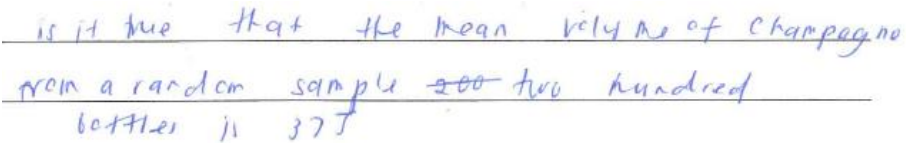 is it true that the mean volyme of Champagne
from a random sample 200 two hundred
bottles is 375